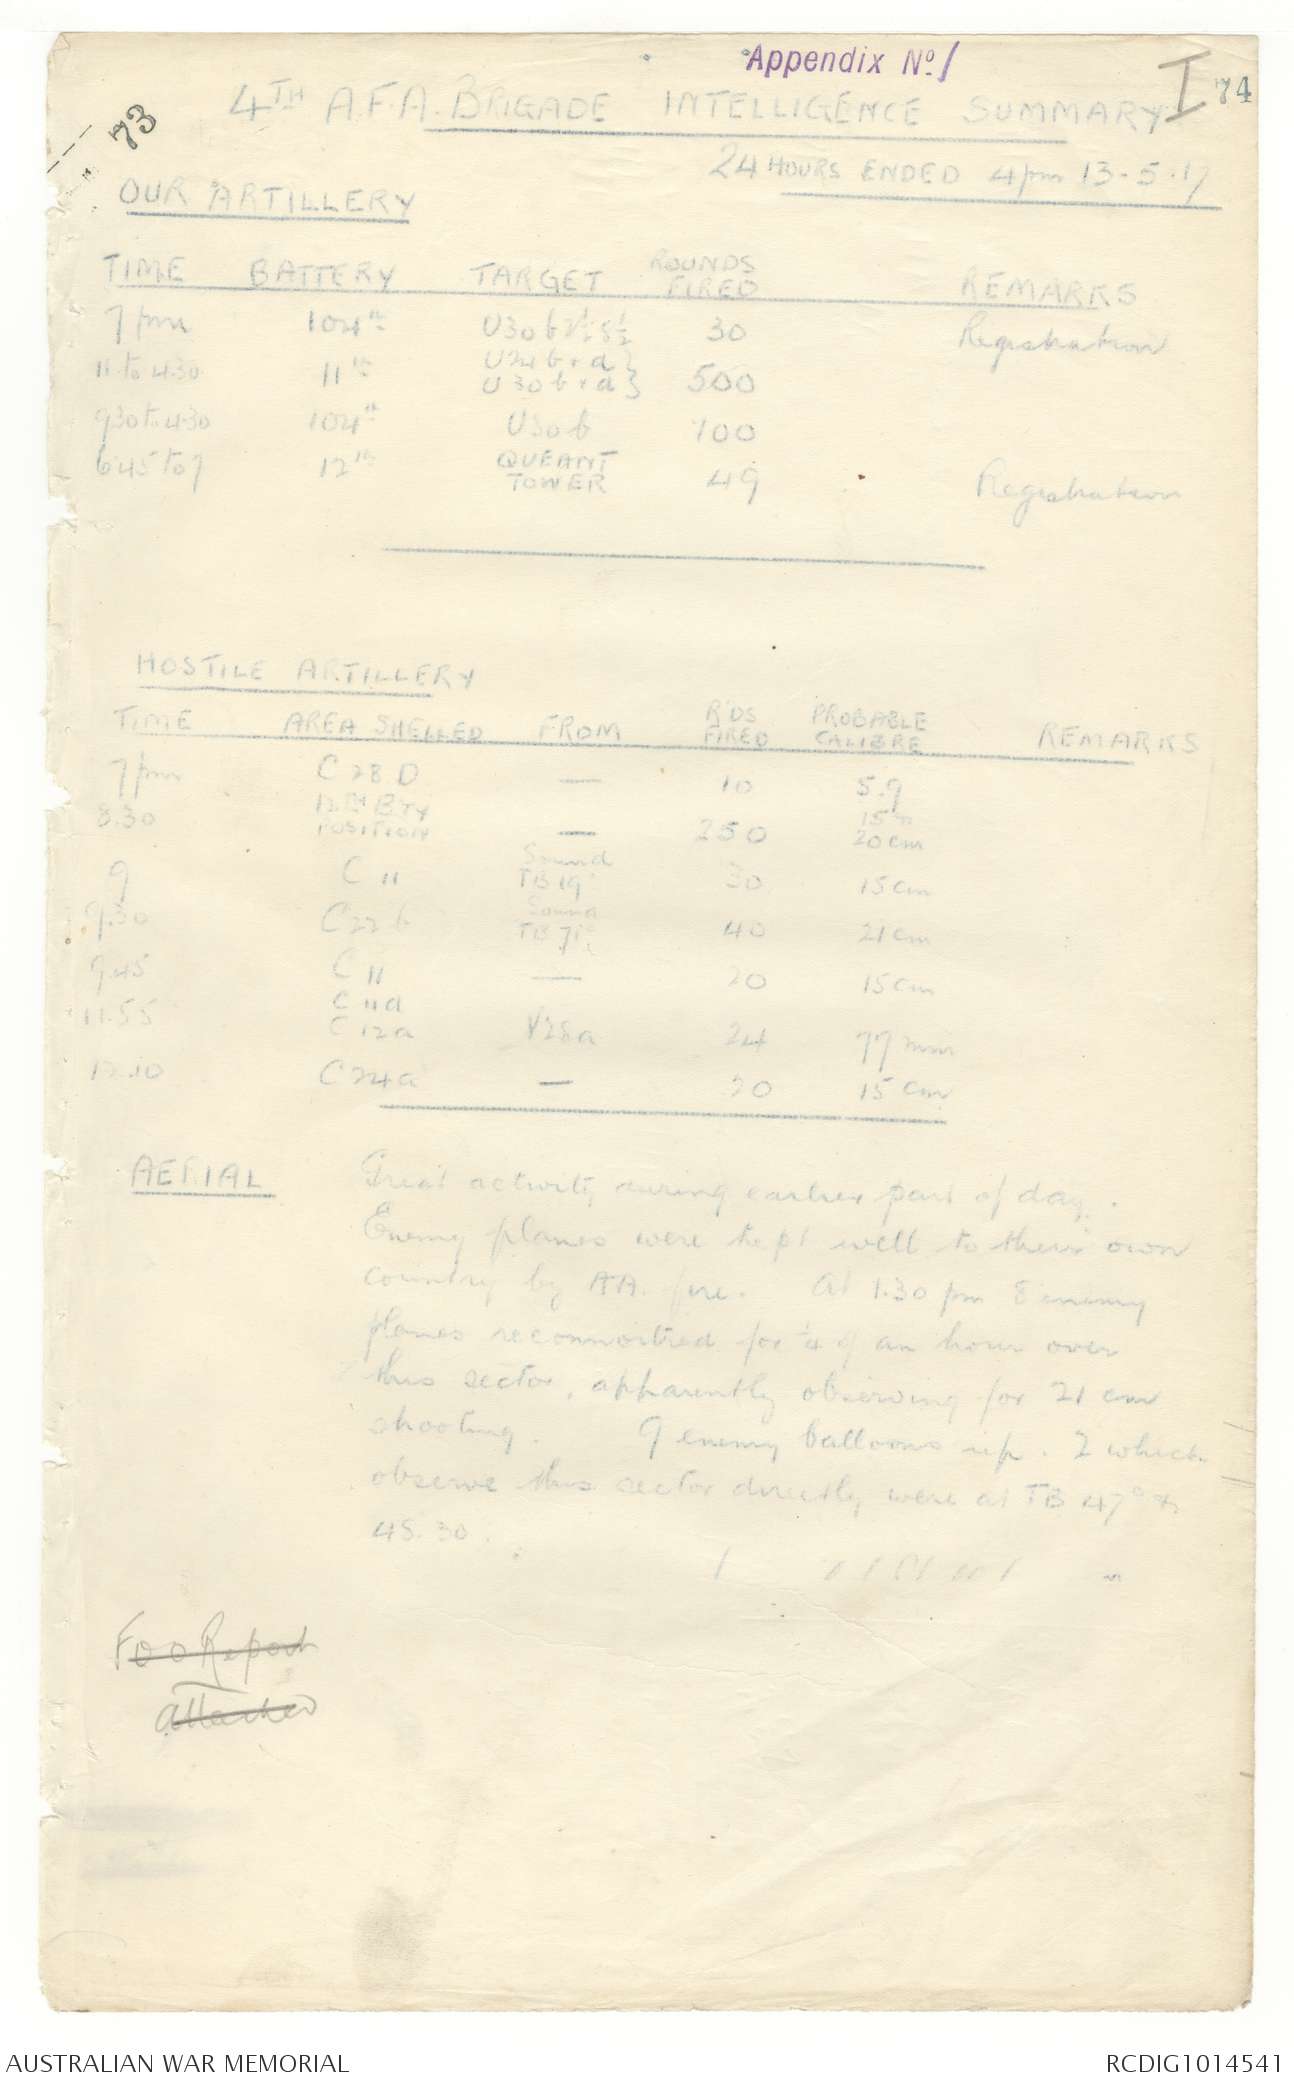 Appendix No. 1
I 74
73
4TH A.F.A. BRIGADE INTELLIGENCE SUMMARY
24 HOURS ENDED 4pm 13-5-17
OUR ARTILLERY
TIME BATTERY TARGET ROUNDS FIRED REMARKS
7pm 104th U30b 30 Registration
11 to 4.30 11th U24b + d } U30b + d } 500
9.30 to 4.30 104th U30b 100
6.45 to 7 12th QUEANT TOWER 49 Registration
HOSTILE ARTILLERY
TIME AREA SHELLED FROM R'DS FIRED PROBABLE CALIBRE REMARKS
7pm C28D — 10 5.9
8.30 BTY POSITION — 250 15 20cm
9 C11 Sound TB19° 30 15cm
9.30 C22b Sound TB71° 40 21cm
9.45 C11 — 20 15cm
11.55 C11a C12a V28a 24 77mm
12.10 C24a — 20 15cm
AERIAL
Great activity during earlier part of day.
Enemy planes were kept well to their own
country by AA. fire. At 1.30 pm 8 enemy
planes reconnoitred for ¼ of an hour over
this sector, apparently observing for 21 cm
shooting. 9 enemy balloons up. 2 which
observe this sector directly were at TB 47° &
45.30.
FOO Report
attached
AUSTRALIAN WAR MEMORIAL
RCDIG1014541